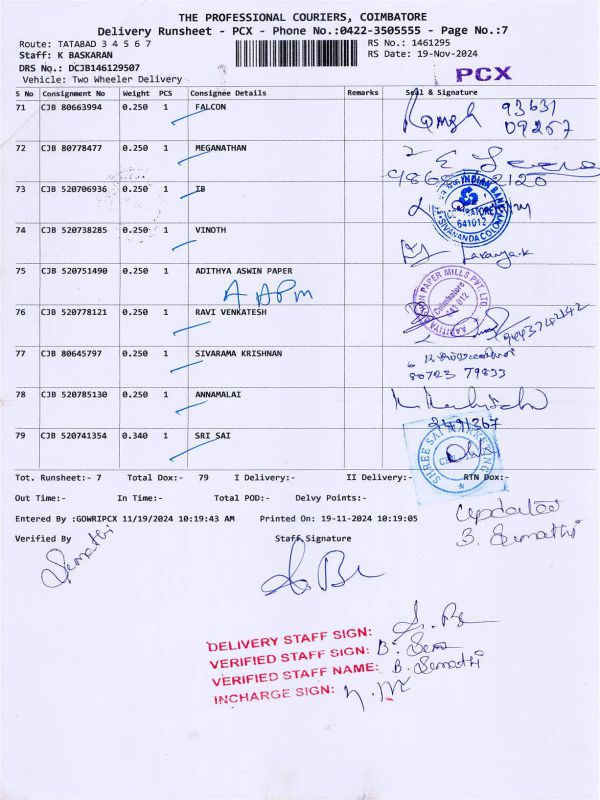 THE PROFESSIONAL COURIERS, COIMBATORE
Delivery Runsheet - PCX - Phone No.:0422-3505555 - Page No.:7
Route: TATABAD 3 4 5 6 7
RS No.: 1461295
Staff: K BASKARAN
RS Date: 19-Nov-2024
DRS No.: DCJB146129507
Vehicle: Two Wheeler Delivery
PCX
S No Consignment No Weight PCS Consignee Details Remarks Seal & Signature
71 CJB 80663994 0.250 1 FALCON
Ramesh 93631
09267
72 CJB 80778477 0.250 1 MEGANATHAN
73 CJB 520706936 0.250 1 IB
INDIAN BANK
COIMBATORE
641012
SIVANANDA COLONY
74 CJB 520738285 0.250 1 VINOTH
Lavanya.k
75 CJB 520751490 0.250 1 ADITHYA ASWIN PAPER
A APM
AADITYA ASWIN PAPER MILLS PVT. LTD.
Coimbatore
641 012
76 CJB 520778121 0.250 1 RAVI VENKATESH
9443742142
77 CJB 80645797 0.250 1 SIVARAMA KRISHNAN
80723 79833
78 CJB 520785130 0.250 1 ANNAMALAI
79 CJB 520741354 0.340 1 SRI SAI
SHREE SAI MARKETING
Tot. Runsheet:- 7 Total Dox:- 79 I Delivery:- II Delivery:- RTN Dox:-
Out Time:- In Time:- Total POD:- Delvy Points:-
Entered By :GOWRIPCX 11/19/2024 10:19:43 AM Printed On: 19-11-2024 10:19:05
Updated
B. Sumathi
Verified By Staff Signature
Sumathi
DELIVERY STAFF SIGN:
VERIFIED STAFF SIGN:
VERIFIED STAFF NAME: B. Sumathi
INCHARGE SIGN: